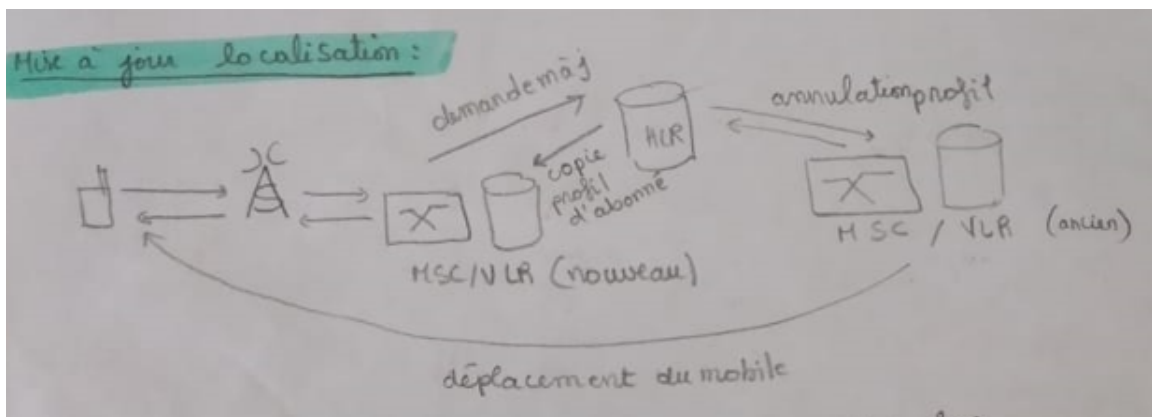 Mise à jour localisation :
demande màj
HLR
annulation profil
copie
profil
d'abonné
MSC/VLR (nouveau)
MSC / VLR (ancien)
déplacement du mobile